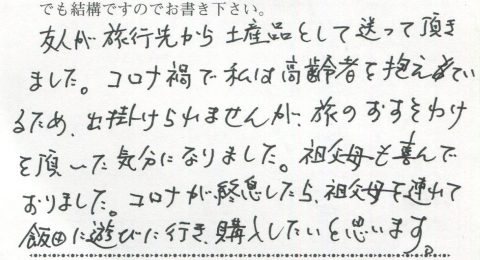 でも結構ですのでお書き下さい。
友人が旅行先から土産品として送って頂き
ました。コロナ禍で私は高齢者を抱えてい
るため、出掛けられませんが、旅のおすそわけ
を頂いた気分になりました。祖父母も喜んで
おりました。コロナが終息したら、祖父母を連れて
飯田に遊びに行き、購入したいと思います。